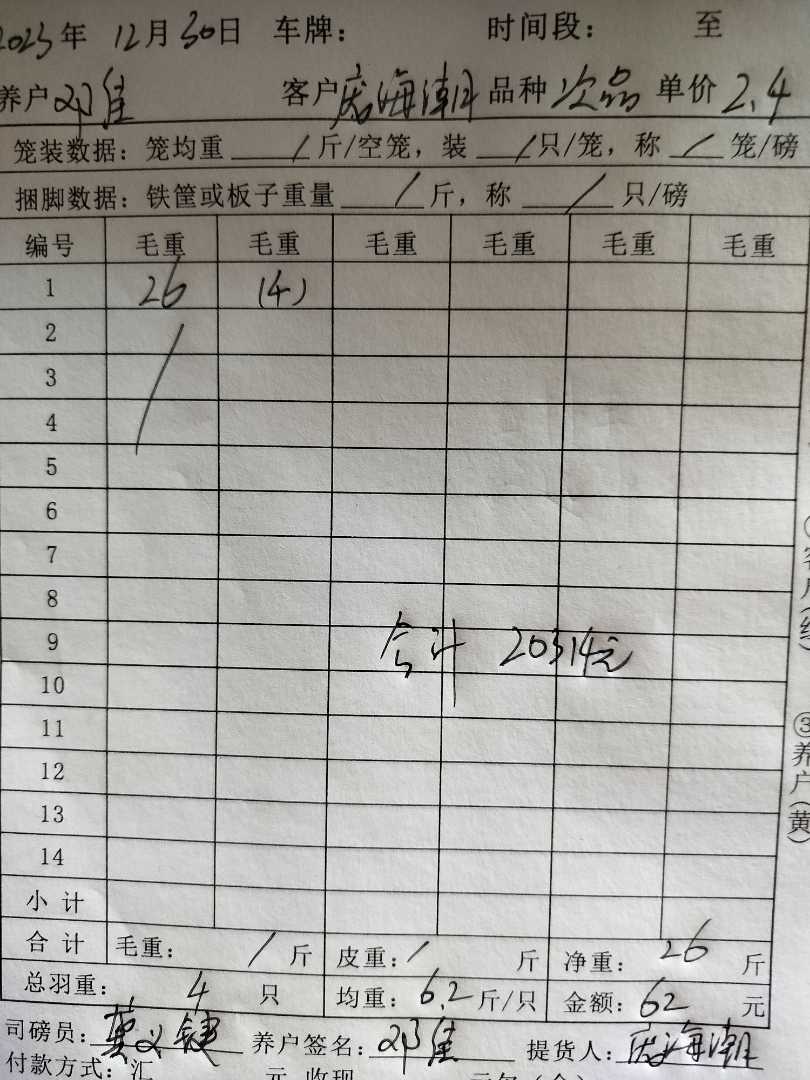 2023年 12月30日 车牌： 时间段： 至
养户 邓佳 客户 庞海潮 品种 次品 单价 2.4
笼装数据：笼均重 / 斤/空笼，装 / 只/笼，称 / 笼/磅
捆脚数据：铁筐或板子重量 / 斤，称 / 只/磅
编号 毛重 毛重 毛重 毛重 毛重 毛重
1 26 (4)
2
3
4
5
6
7
8
9 合计 20314元
10
11
12
13
14
小计
合计 毛重： / 斤 皮重： / 斤 净重： 26 斤
总羽重： 4 只 均重： 6.2 斤/只 金额： 62 元
司磅员： 养户签名： 邓佳 提货人： 庞海潮
付款方式：汇 元 收现
③养户(黄)